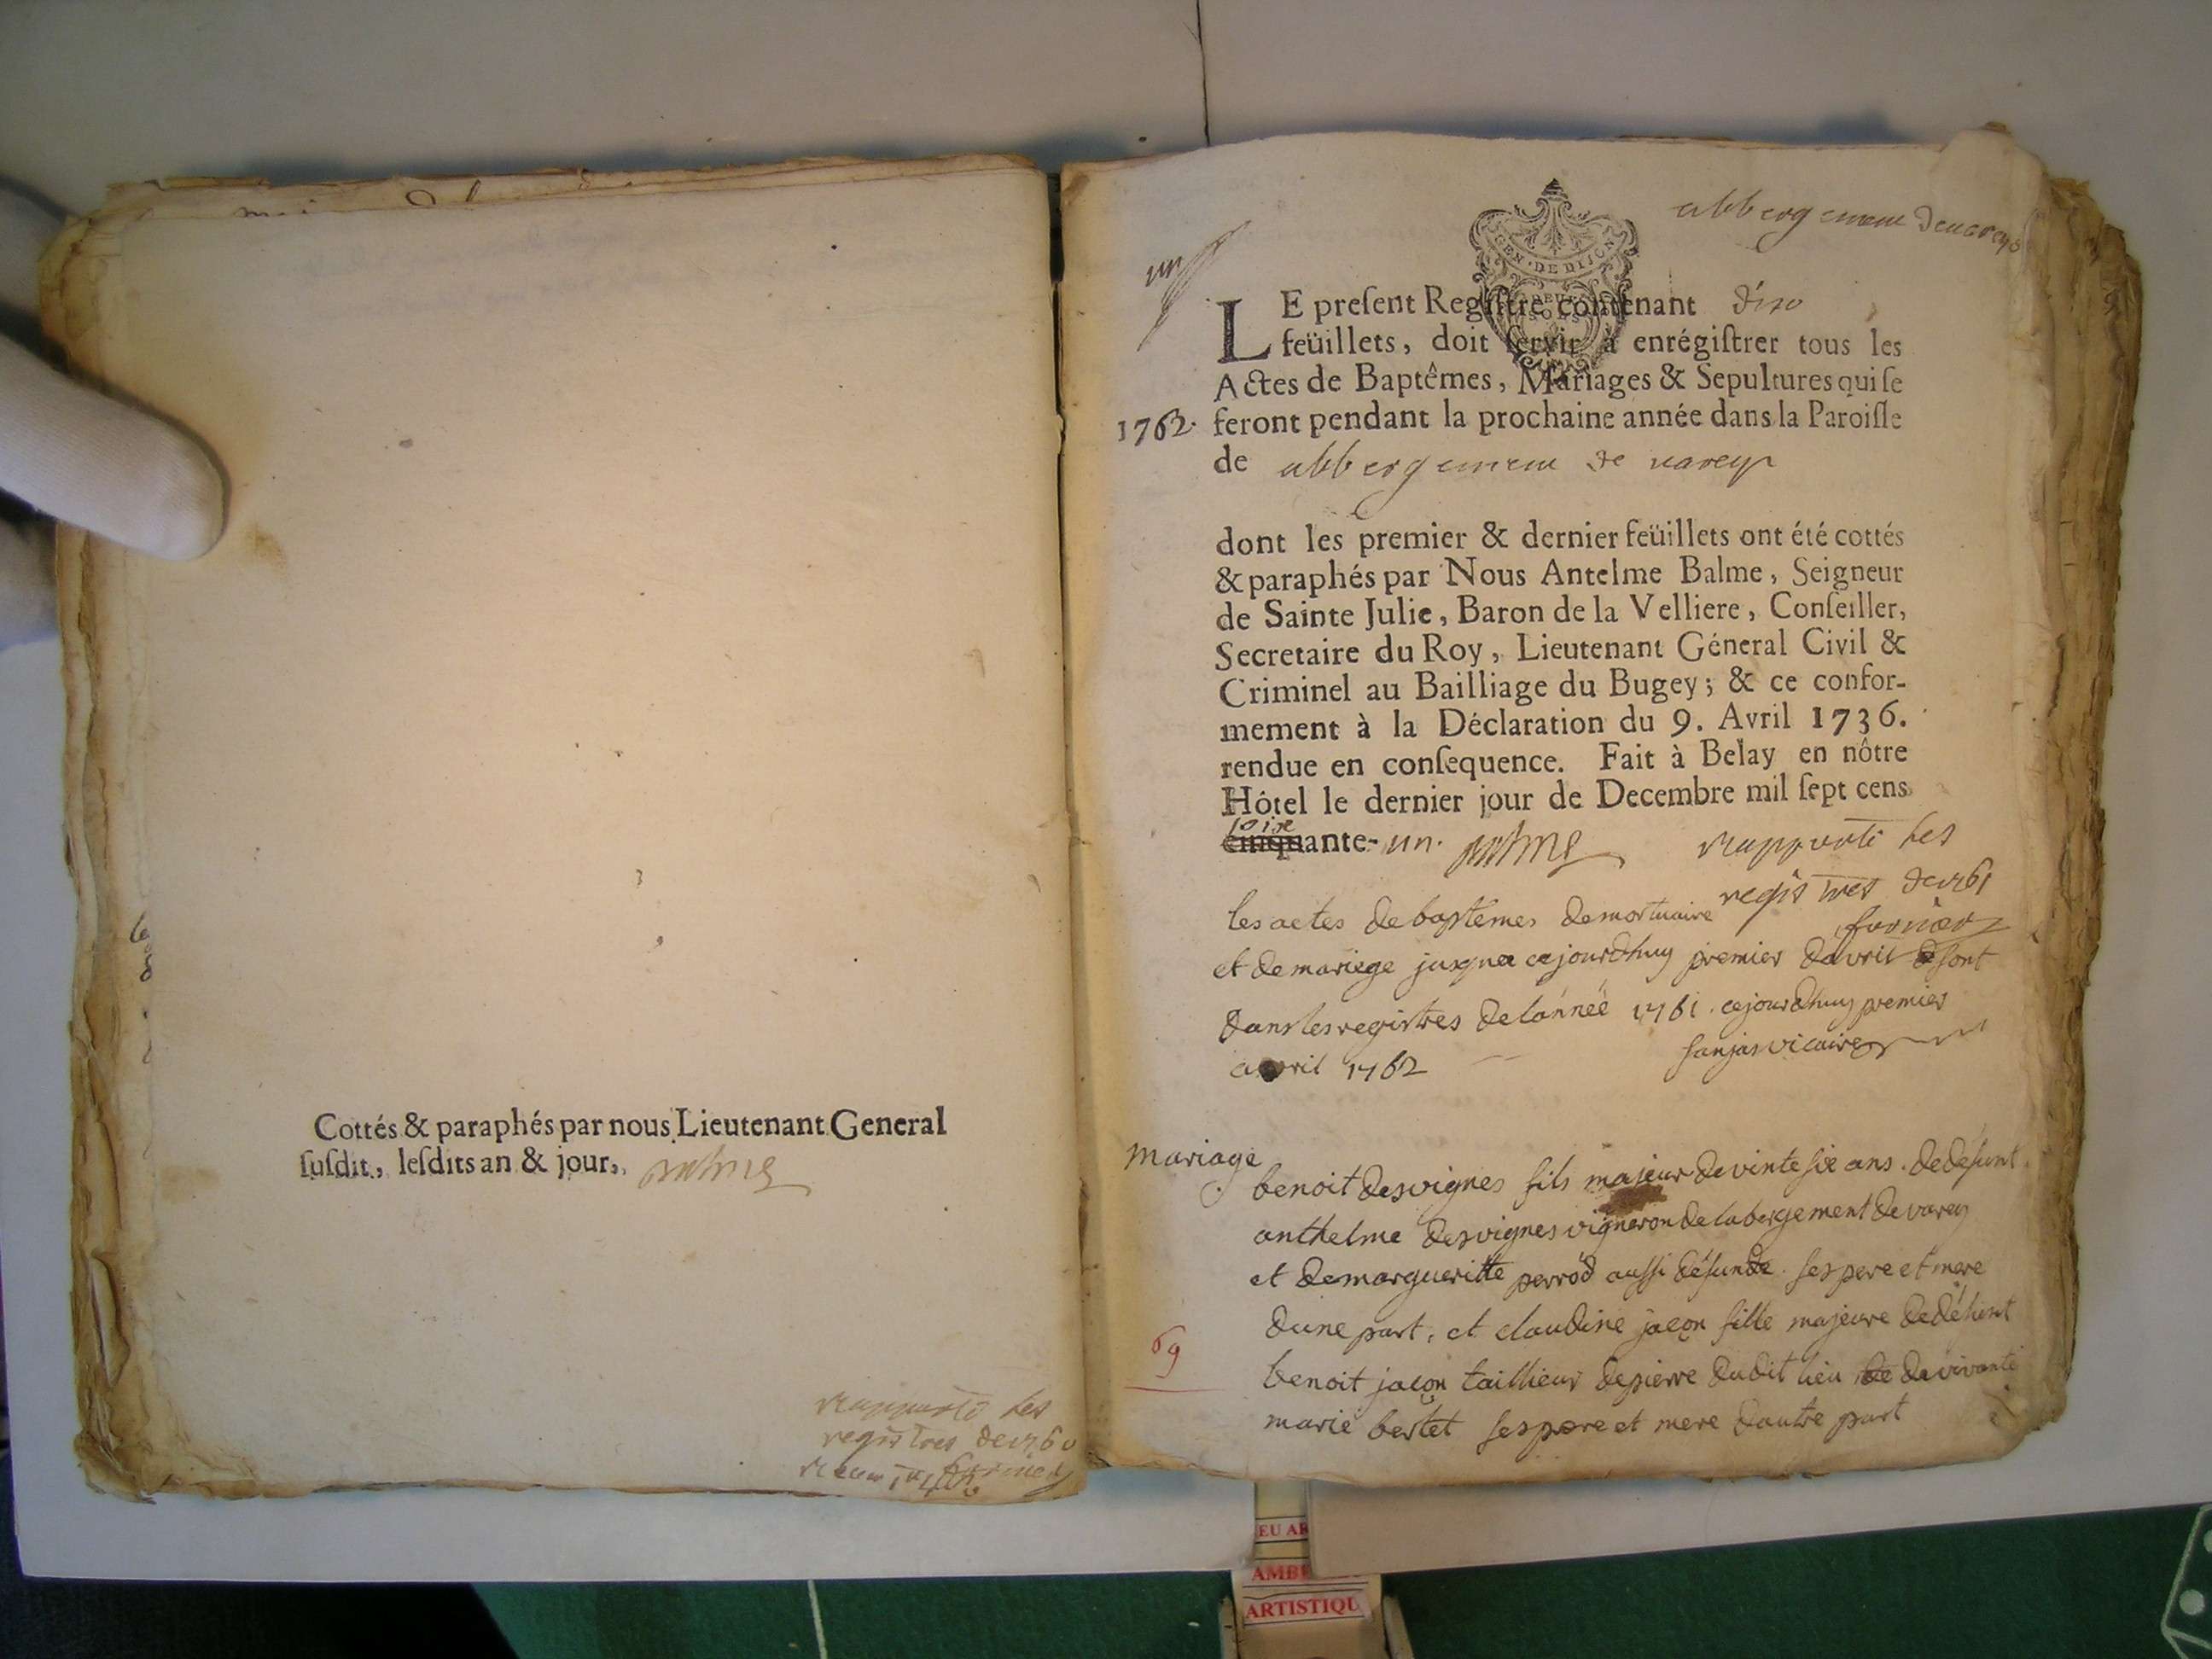 Cottés & paraphés par nous Lieutenant General
ſuſdit, leſdits an & jour,
rapporté les
registres de 1760
un
abbergement de varey
GEN · DE DIJON
LE preſent Regiſtre contenant dix
feüillets, doit ſervir à enrégiſtrer tous les
Actes de Baptêmes, Mariages & Sepultures qui ſe
1762. feront pendant la prochaine année dans la Paroiſſe
de abbergement de varey
dont les premier & dernier feüillets ont été cottés
& paraphés par Nous Antelme Balme, Seigneur
de Sainte Julie, Baron de la Velliere, Conſeiller,
Secretaire du Roy, Lieutenant Géneral Civil &
Criminel au Bailliage du Bugey; & ce confor-
mement à la Déclaration du 9. Avril 1736.
rendue en conſequence. Fait à Belay en nôtre
Hôtel le dernier jour de Decembre mil ſept cens
soixe
cinquante- un. rapporté les
registres de 1761
les actes de baptêmes de mortuaire
et de mariege jusquea cejourdhuy premier davril sont
dans les registres de lannéé 1761. cejourdhuy premier
avril 1762 sanjas vicaire
Mariage
benoit desvignes fils majeur de vinte six ans. de defunt
anthelme desvignes vigneron de labergement de varey
et de margueritte perrod aussi défunde. ses pere et mere
dune part, et claudine jacon fille majeure de défunt
69
benoit jacon taillieur de pierre dudit lieu de de vivante
marie bertet ses pere et mere dautre part
EU AR
AMBI
ARTISTIQU